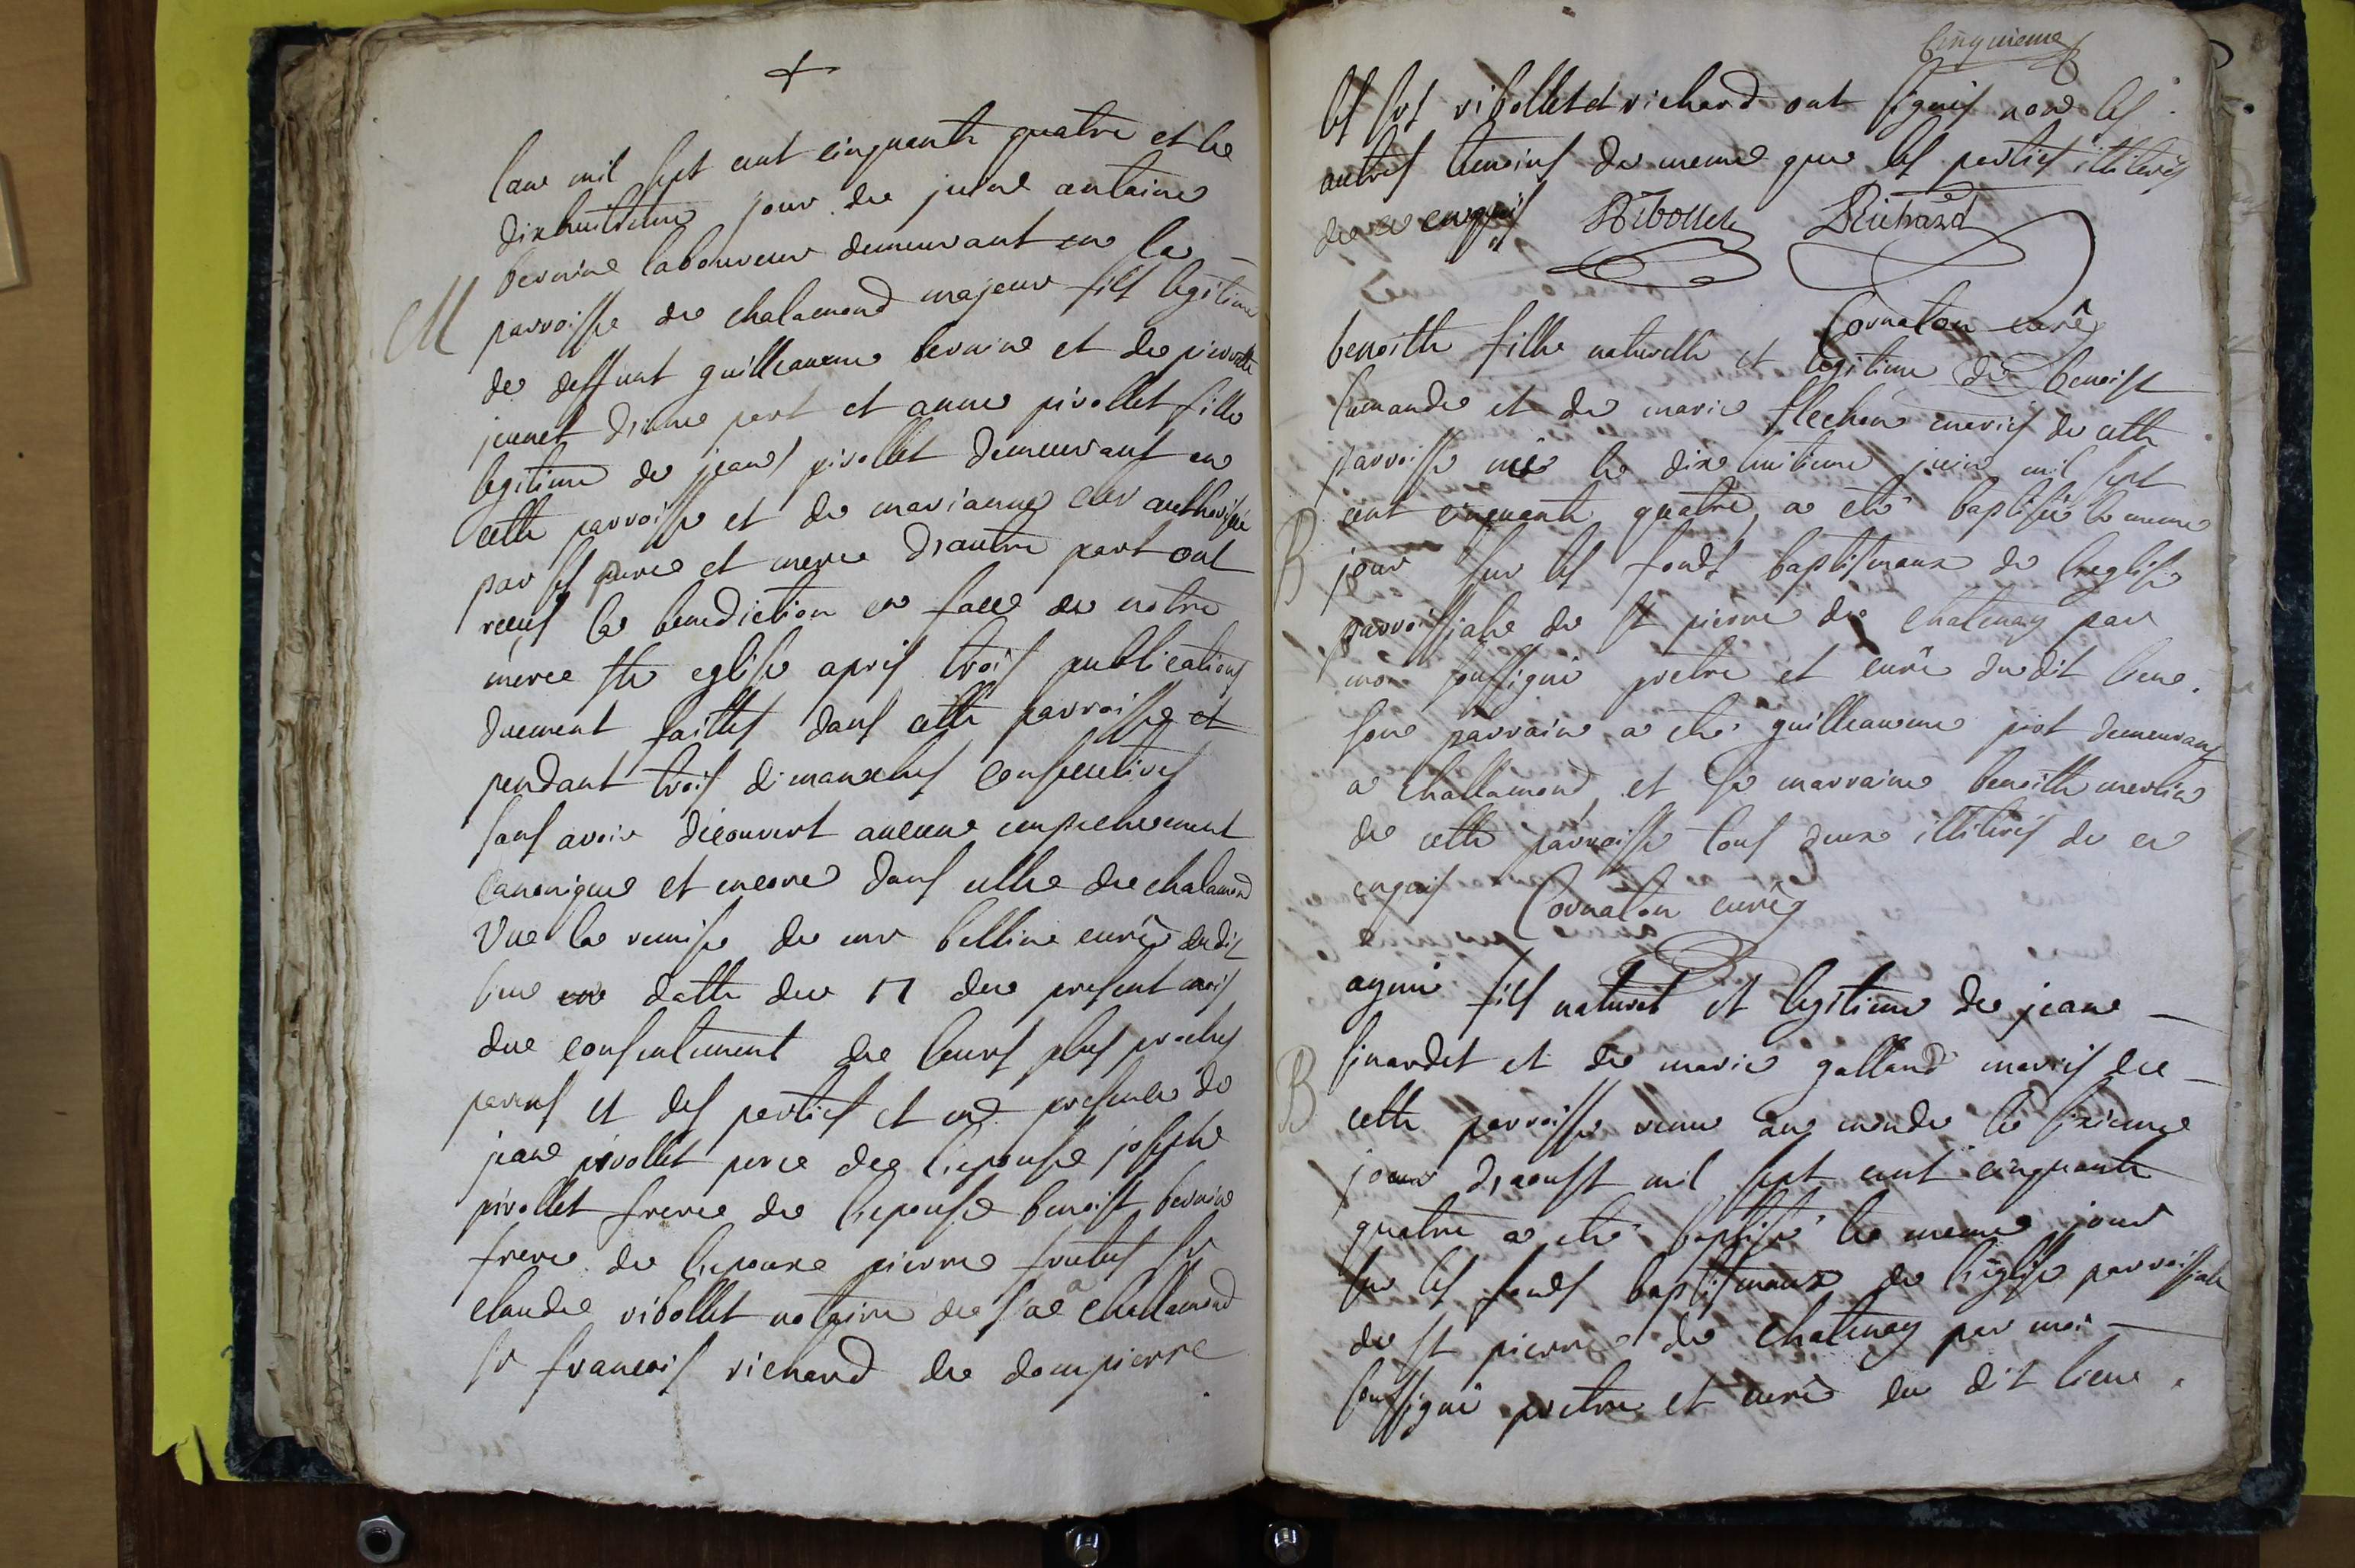 +
lan mil sept cent cinquante quatre et le
dixhuitieme jour de juine antoine
bernine laboureur demeurant en la
M
parroisse de chalamond majeur fils legitime
de deffunt guilleaume bernine et de pierrette
jeunet d'une part et anne pivollet fille
legitime de jeans pivollet demeurant en
cette parroisse et de marianne authorisée
par ses pere et mere d'autre part ont
reçus la benediction en face de notre
mere ste eglise apres trois publications
duement faittes dans cette parroisse et
pendant trois dimanches consecutives
sans avoir découvert aucune empechement
canonique et encore dans celle de chalamond
Vue la remise de mr belline curé dudit
lieu en datte du 17 du present mois
du consentement de leurs plus proches
parens et des parties et en presence de
jean pivollet pere de l'epouse joseph
pivollet frere de l'epouse benoist bernine
frere de l'epoux pierre sr
claude ribollet notaire de a chalamond
sr françois richard de dompierre
Cinquieme
les srs ribollet et richard ont signés non les
autres temoins de meme que les parties illiterés
de ce enquis Ribollet Richard
Cornaton curé
benoitte fille naturelle et legitime de benoist
lamande et de marie flechon mariés de cette
parroisse née le dixhuitieme juin mil sept
cent cinquante quatre a eté baptisée le meme
B
jour sur les fonds baptismaux de l'eglise
parroissiale de st pierre de chatenay par
moi soussigné pretre et curé dudit lieu.
son parrain a eté guilleaume piot demeurant
a challamond et sa marraine benoitte merlin
de cette parroisse tous deux illiterés de ce
enquis Cornaton curé
aymé fils naturel et legitime de jean
B
et de marie galland mariés de
cette parroisse venu au monde le sixieme
jour d'aoust mil sept cent cinquante
quatre a eté baptisé le meme jour
sur les fonds baptismaux de l'église parroissiale
de st pierre de chatenay par moi
soussigné pretre et curé du dit lieu.